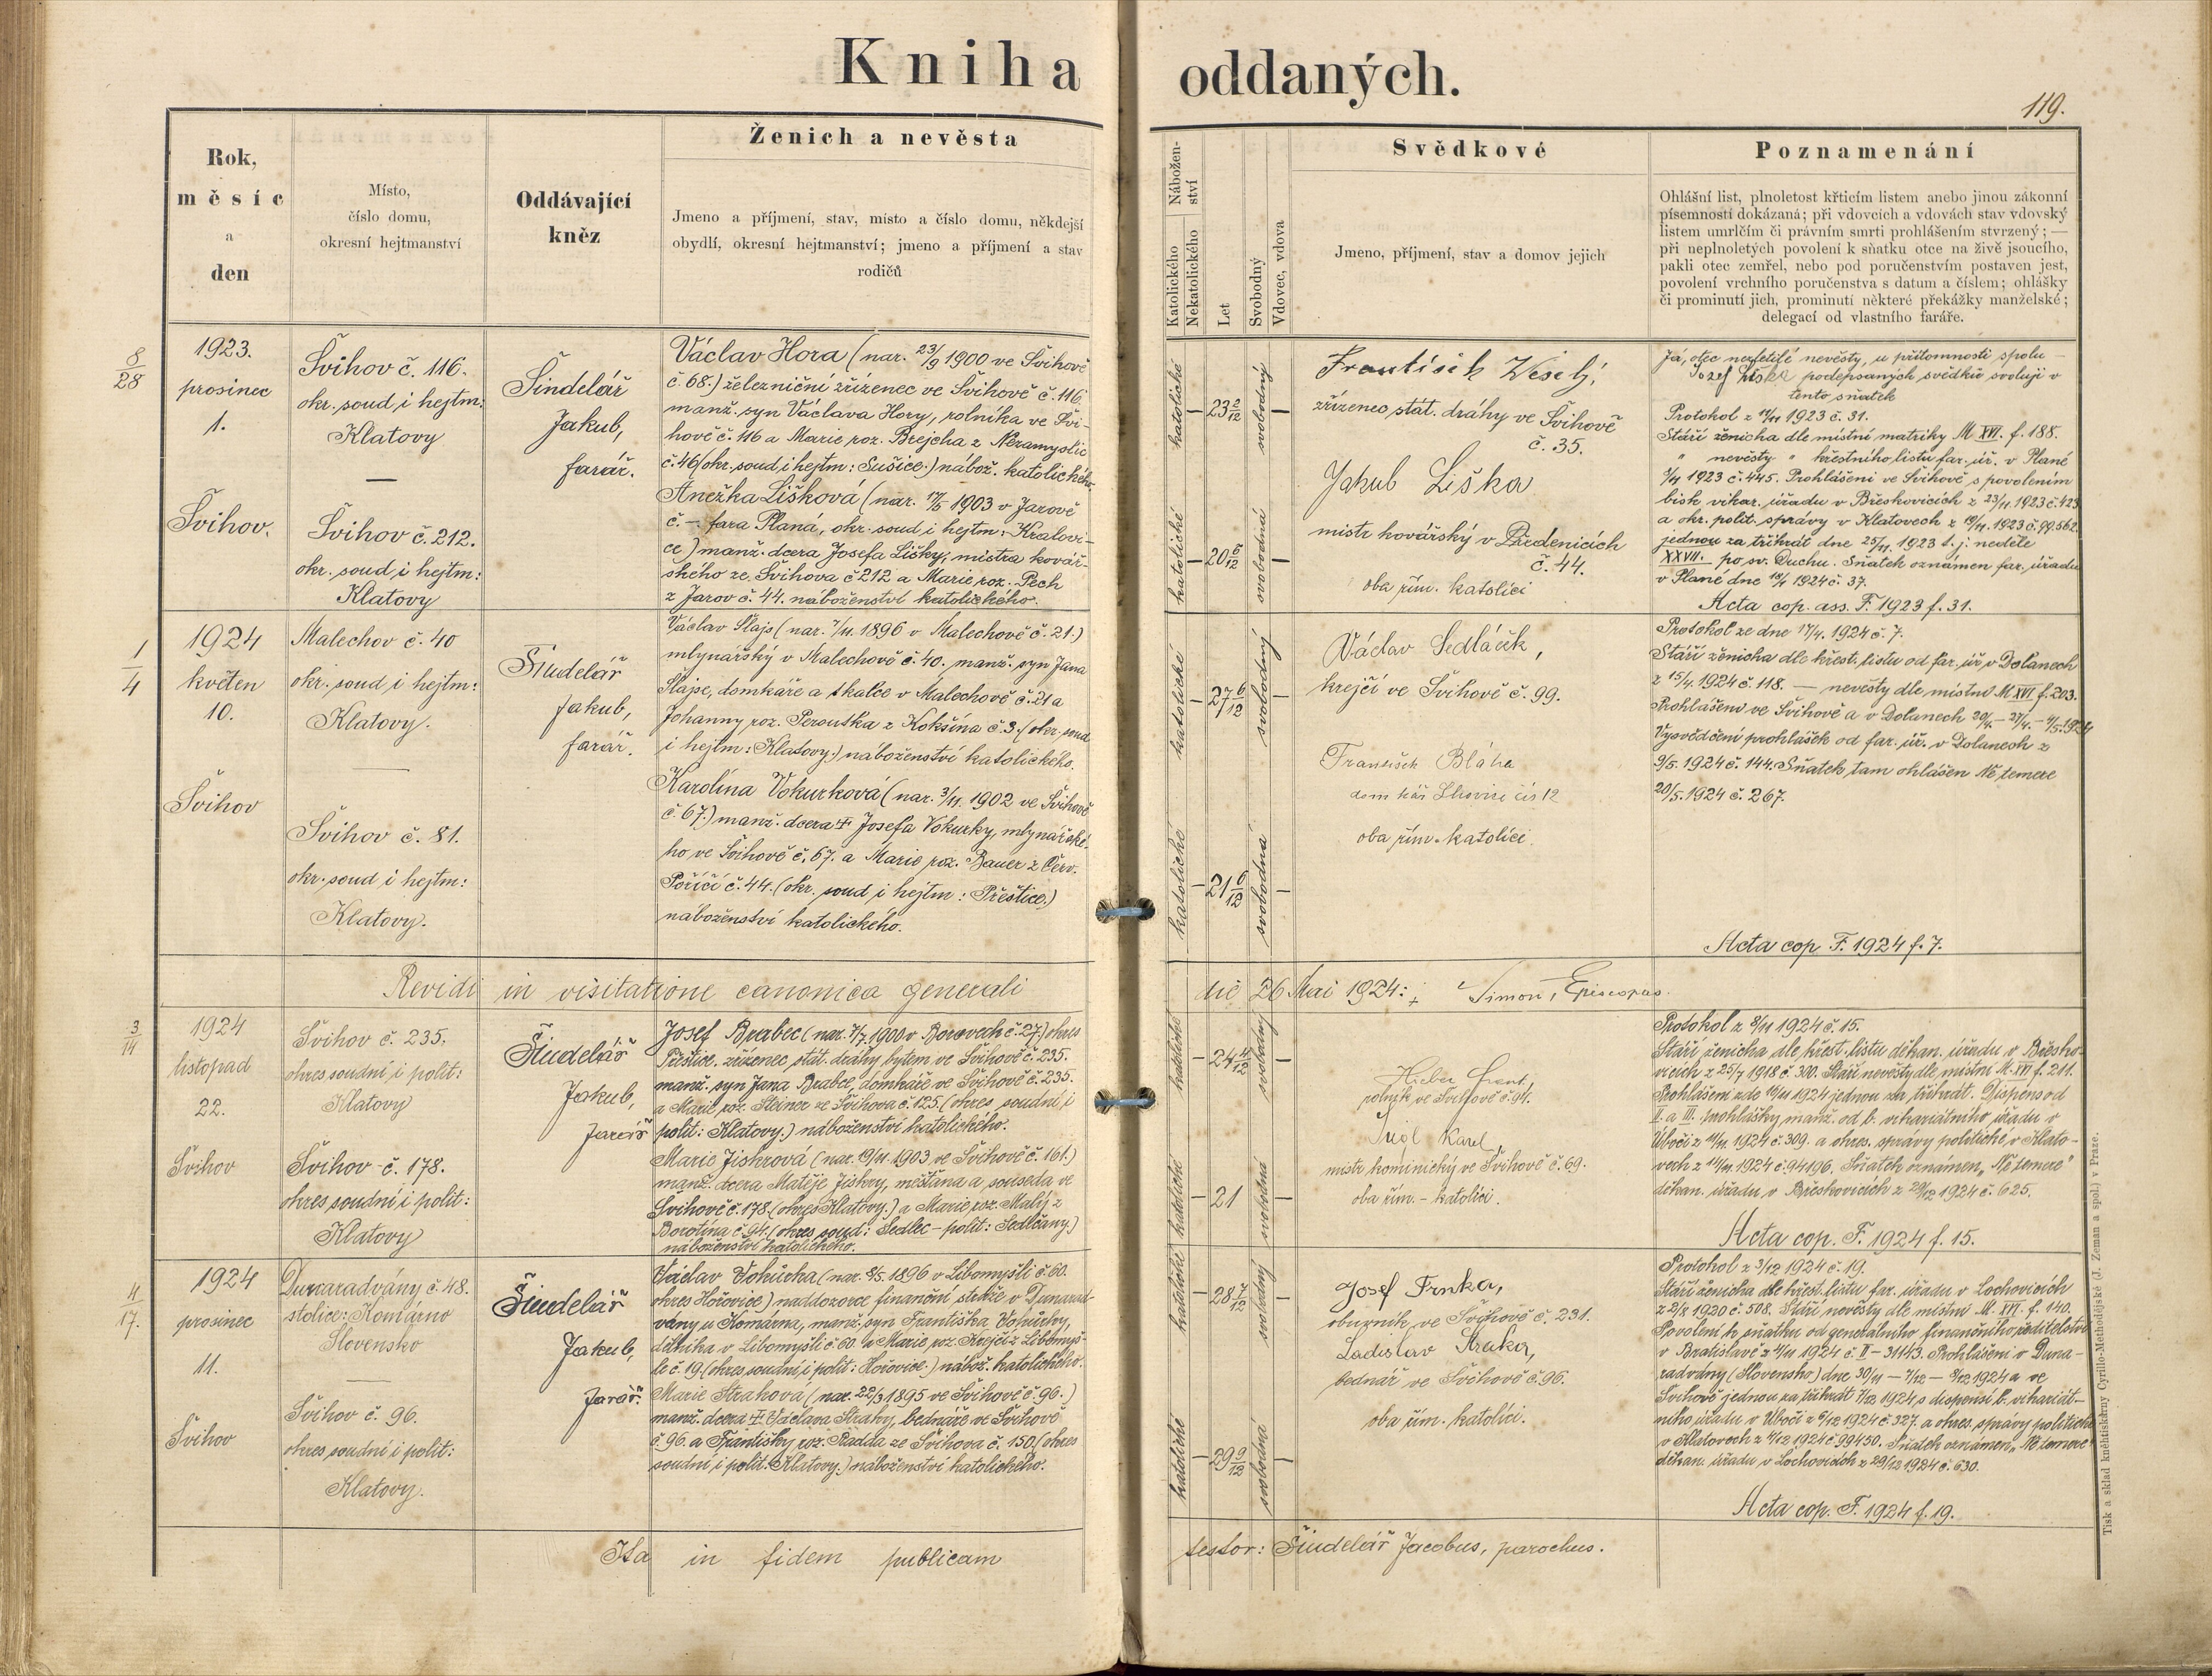 Kniha oddaných.
119.
Rok,
měsíc
a
den
Místo,
číslo domu,
okresní hejtmanství
Oddávající
kněz
Ženich a nevěsta
Jmeno a příjmení, stav, místo a číslo domu, někdejší
obydlí, okresní hejtmanství; jmeno a příjmení a stav
rodičů
Nábožen-
ství
Katolického
Nekatolického
Let
Svobodný
Vdovec, vdova
Svědkové
Jmeno, příjmení, stav a domov jejich
Poznamenání
Ohlášní list, plnoletost křticím listem anebo jinou zákonní
písemností dokázaná; při vdovcích a vdovách stav vdovský
listem umrlčím či právním smrti prohlášením stvrzený; —
při neplnoletých povolení k sňatku otce na živě jsoucího,
pakli otec zemřel, nebo pod poručenstvím postaven jest,
povolení vrchního poručenstva s datum a číslem; ohlášky
či prominutí jich, prominutí některé překážky manželské;
delegací od vlastního faráře.
8/28
1923.
prosinec
1.
Švihov.
Švihov č. 116.
okr. soud i hejtm:
Klatovy
—
Švihov č. 212.
okr. soud i hejtm:
Klatovy
Šindelář
Jakub,
farář.
Václav Hora (nar. 23/9 1900 ve Švihově
č. 68.) železniční zřízenec ve Švihově č. 116
manž. syn Václava Hory, rolníka ve Švi-
hově č. 116 a Marie roz. Brejcha z Nezamyslic
č. 46 (okr. soud i hejtm: Sušice.) nábož. katolického.
Anežka Lišková (nar. 17/5 1903 v Jarově
č. — fara Planá, okr. soud i hejtm: Kralovi-
ce) manž. dcera Josefa Lišky, mistra kovář-
ského ze Švihova č 212 a Marie roz. Pech
z Jarov č. 44. náboženství katolického.
katolické
—
23 2/12
svobodný
—
katolické
—
20 6/12
svobodná
—
František Veselý,
zřízenec stát. dráhy ve Švihově
č. 35.
Jakub Liška
mistr kovářský v Předenicích
č. 44.
oba řím. katolíci
Já, otec nezletilé nevěsty, u přítomnosti spolu-
Jozef Liška podepsaných svědků svoluji v
tento sňatek
Protokol z 17/11 1923 č. 31.
Stáří ženicha dle místní matriky M XVI. f. 188.
" nevěsty " křestního listu far. úř. v Plané
1923 č. 445. Prohlášeni ve Švihově s povolením
bisk. vikar. úřadu v Břeskovicích z 23/11 1923 č. 423
a okr. polit. správy v Klatovech z 19/11. 1923 č. 99.562.
jednou za třikrát dne 25/11. 1923 t. j. neděle
XXVII. po sv. Duchu. Sňatek oznámen far. úřadu
v Plané dne 1924 č. 37.
Acta cop. ass. F. 1923 f. 31.
1/4
1924
květen
10.
Švihov
Malechov č. 40
okr. soud i hejtm:
Klatovy.
—
Švihov č. 81.
okr. soud i hejtm:
Klatovy.
Šindelář
Jakub,
farář.
Václav Slajs (nar. 7/11. 1896 v Malechově č. 21.)
mlynářský v Malechově č. 40. manž. syn Jana
Slajse, domkáře a tkalce v Malechově č. 21 a
Johanny roz. Peroutka z Kokšína č. 3. (okr. soud
i hejtm: Klatovy.) náboženství katolického.
Karolína Vokurková (nar. 3/11. 1902 ve Švihově
č. 67.) manž. dcera † Josefa Vokurky, mlynářské-
ho ve Švihově č. 67. a Marie roz. Bauer z Červ.
Poříčí č. 44. (okr. soud i hejtm: Přeštice.)
náboženství katolického.
katolické
—
27 6/12
svobodný
—
katolické
—
21 6/12
svobodná
—
Václav Sedláček,
krejčí ve Švihově č. 99.
František Bláha
domkář Lhovice čís 12
oba řím. katolíci.
Protokol ze dne 17/4. 1924 č. 7.
Stáří ženicha dle křest. listu od far. úř. v Dolanech
z 15/4. 1924 č. 118. — nevěsty dle místní M XVI f. 203.
Prohlášeni ve Švihově a v Dolanech 20/4. — 27/4. — 4/5. 1924
Vysvědčení prohlášek od far. úř. v Dolanech z
9/5. 1924 č. 144. Sňatek tam ohlášen Ne temere
20/5. 1924 č. 267.
Acta cop. F. 1924 f. 7.
Revidi in visitatione canonica generali die 26 Mai 1924: + Simon, Episcopus.
3/14
1924
listopad
22.
Švihov
Švihov č. 235.
okres soudní i polit:
Klatovy
Švihov č. 178.
okres soudní i polit:
Klatovy
Šindelář
Jakub,
farář
Josef Brabec (nar. 7/7. 1900 v Borovech č. 27.) okres
Přeštice. zřízenec stát. dráhy bytem ve Švihově č. 235.
manž. syn Jana Brabce, domkáře ve Švihově č. 235.
a Marie roz. Steiner ze Švihova č. 125. (okres soudní i
polit: Klatovy.) náboženství katolického.
Marie Jiskrová (nar. 19/11. 1903 ve Švihově č. 161.)
manž. dcera Matěje Jiskry, měšťana a souseda ve
Švihově č. 178. (okres Klatovy.) a Marie roz. Malý z
Borotína č. 94. (okres soud: Sedlec – polit: Sedlčany.)
náboženství katolického.
katolické
—
24 4/12
svobodný
—
katolické
—
21
svobodná
—
Hieber Frant,
rolník ve Švihově č. 94.
Karel,
mistr kominický ve Švihově č. 69.
oba řím. – katolíci.
Protokol z 8/11 1924 č. 15.
Stáří ženicha dle křest. listu děkan. úřadu v Břesko-
vicích z 25/7 1918 č. 300. Stáří nevěsty dle místní M. XVI f. 211.
Prohlášeni zde 16/11 1924 jednou za třikrát. Dispens od
II. a III. prohlášky manž. od b. vikariátního úřadu v
Úbočí z 11/11. 1924 č. 309. a okres. správy politické v Klato-
vech z 14/11. 1924 č. 94196. Sňatek oznámen „Ne temere"
děkan. úřadu v Břeskovicích z 29/12 1924 č. 625.
Acta cop. F. 1924 f. 15.
4/17.
1924
prosinec
11.
Švihov
Dunaradvány č. 48.
stolice: Komárno
Slovensko
—
Švihov č. 96.
okres soudní i polit:
Klatovy.
Šindelář
Jakub,
farář.
Václav Vokůrka (nar. 8/5. 1896 v Libomyšli č. 60.
okres Hořovice) naddozorce finanční stráže v Dunarad-
vány u Komárna, manž. syn Františka Vokůrky,
dělníka v Libomyšli č. 60. a Marie roz. Krejčí z Libomyš-
le č. 19. (okres soudní i polit: Hořovice.) nábož. katolického.
Marie Strahová (nar. 22/3 1895 ve Švihově č. 96.)
manž. dcera †. Václava Strahy, bednáře ve Švihově
č. 96. a Františky roz. Radda ze Švihova č. 150. (okres
soudní i polit: Klatovy.) náboženství katolického.
katolické
—
28 7/12
svobodný
—
katolické
—
29 9/12
svobodná
—
Josef Frnka,
obuvník ve Švihově č. 231.
Ladislav Straka,
bednář ve Švihově č. 96.
oba řím. katolíci.
Protokol z 3/12 1924 č. 19.
Stáří ženicha dle křest. listu far. úřadu v Lochovicích
z 2/8 1920 č. 508. Stáří nevěsty dle místní M. XVI. f. 140.
Povolení k sňatku od generálního finančního ředitelství
v Bratislavě z 4/11 1924 č. II – 31143. Prohlášeni v Duna-
radvány (Slovensko) dne 30/11 — 7/12 — 8/12 1924 a ve
Švihově jednou za třikrát 7/12 1924 s dispensí b. vikariát-
ního úřadu v Úbočí z 6/12 1924 č. 327. a okres. správy politické
v Klatovech z 4/12 1924 č. 99450. Sňatek oznámen „Ne temere"
děkan. úřadu v Lochovicích z 29/12 1924 č. 630.
Acta cop. F. 1924 f. 19.
Ita in fidem publicam testor: Šindelář Jacobus, parochus.
Tisk a sklad knihtiskárny Cyrillo-Methodějské (J. Zeman a spol.) v Praze.